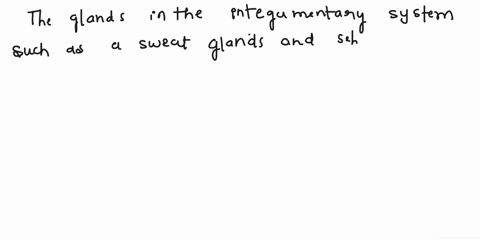 The glands in the integumentary system
such as a sweat glands and seb